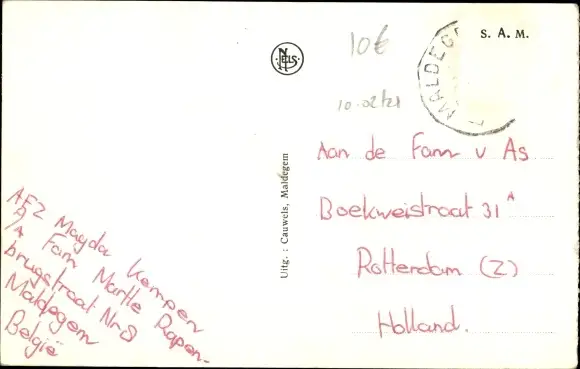 10€
S. A. M.
MALDEG
NELS
10-02
Uitg. : Cauwels, Maldegem
Aan de Fam v As
Boekweistraat 31 A
Rotterdam (Z)
Holland.
AFZ Magda Kempen
P/A Fam Martle Rapen-
brugstraat Nr 8
Maldegem
België